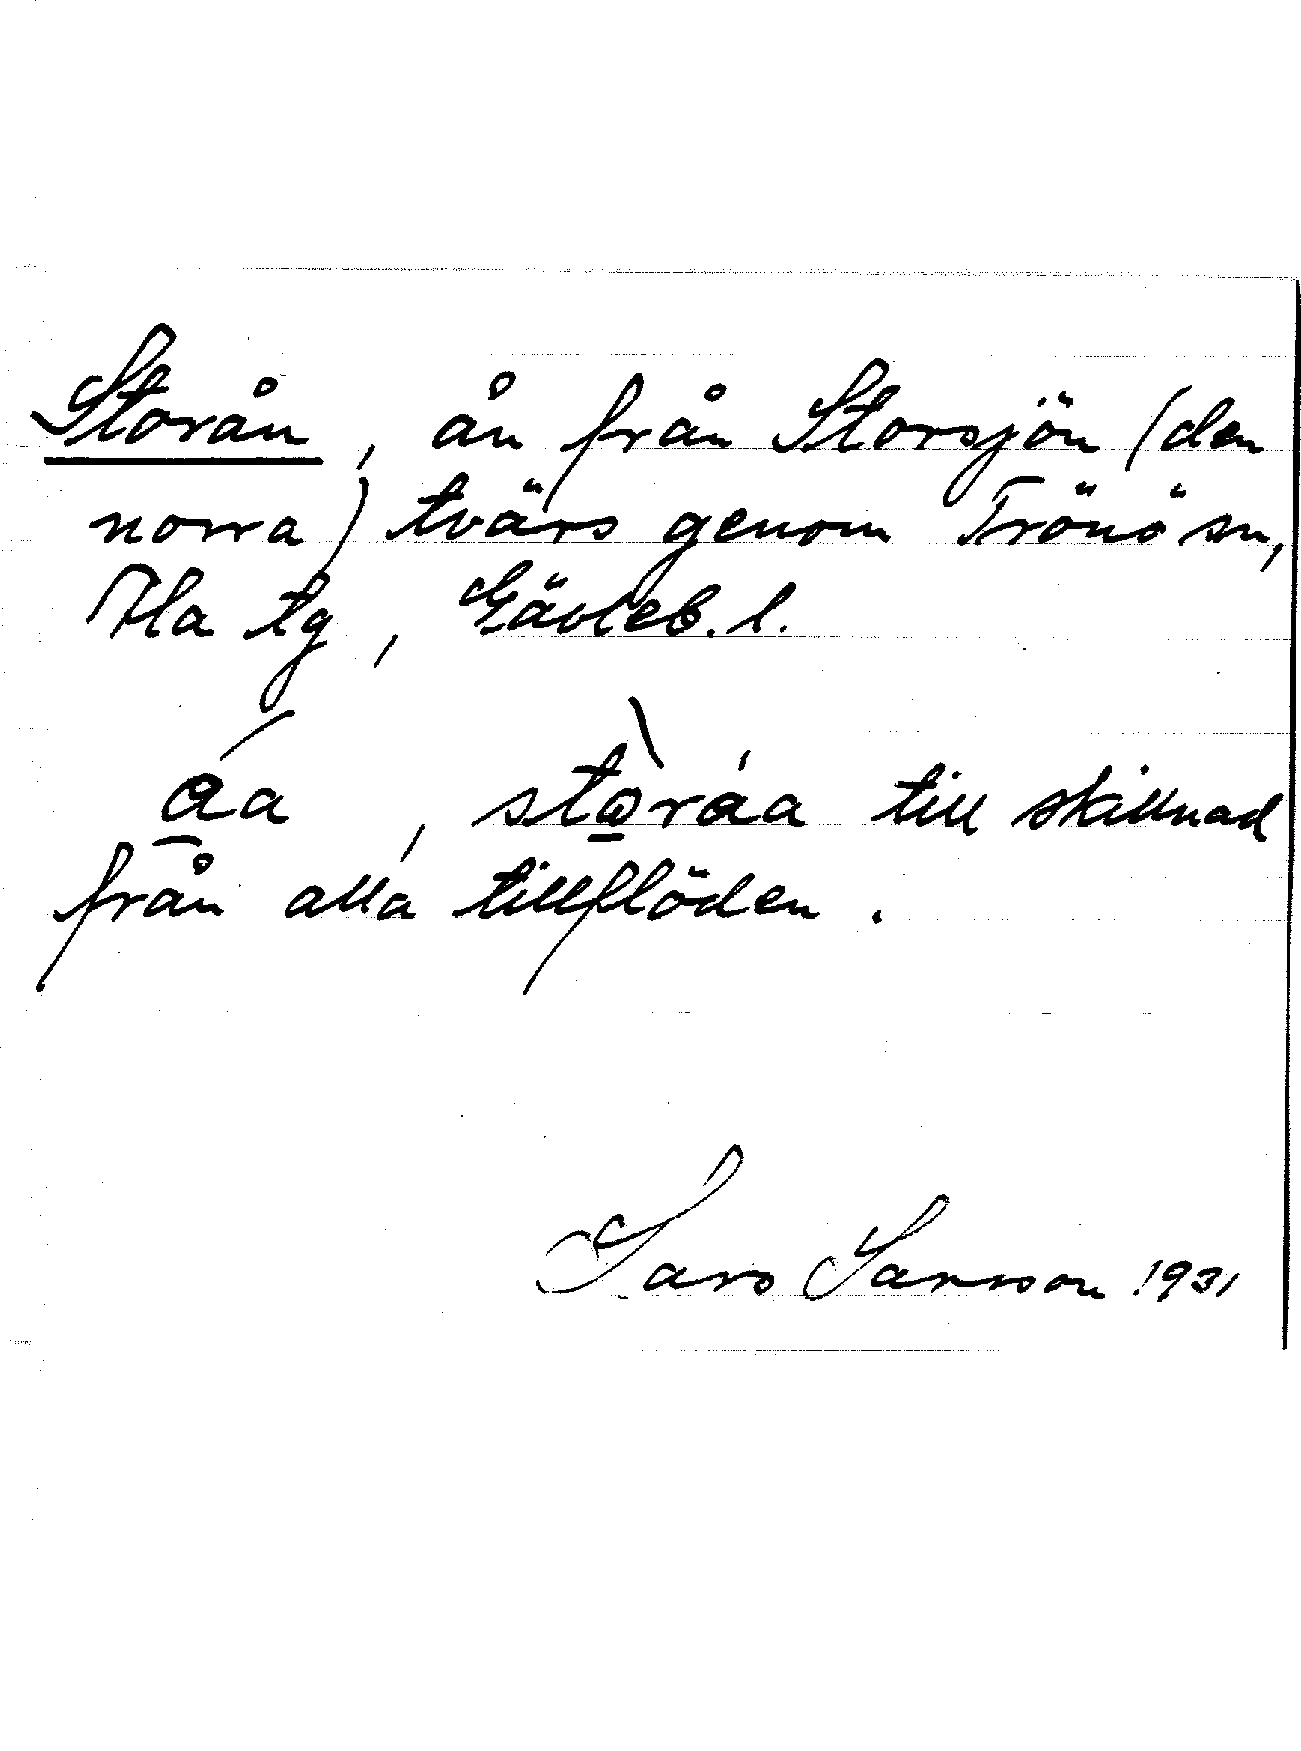 Storån, ån från Storsjön (den
norra) tvärs genom Trönö sn,
Hla tg, Gävleb. l.
á̱a, stò̱ráa till skillnad
från alla tillflöden.
Lars Larsson 1931